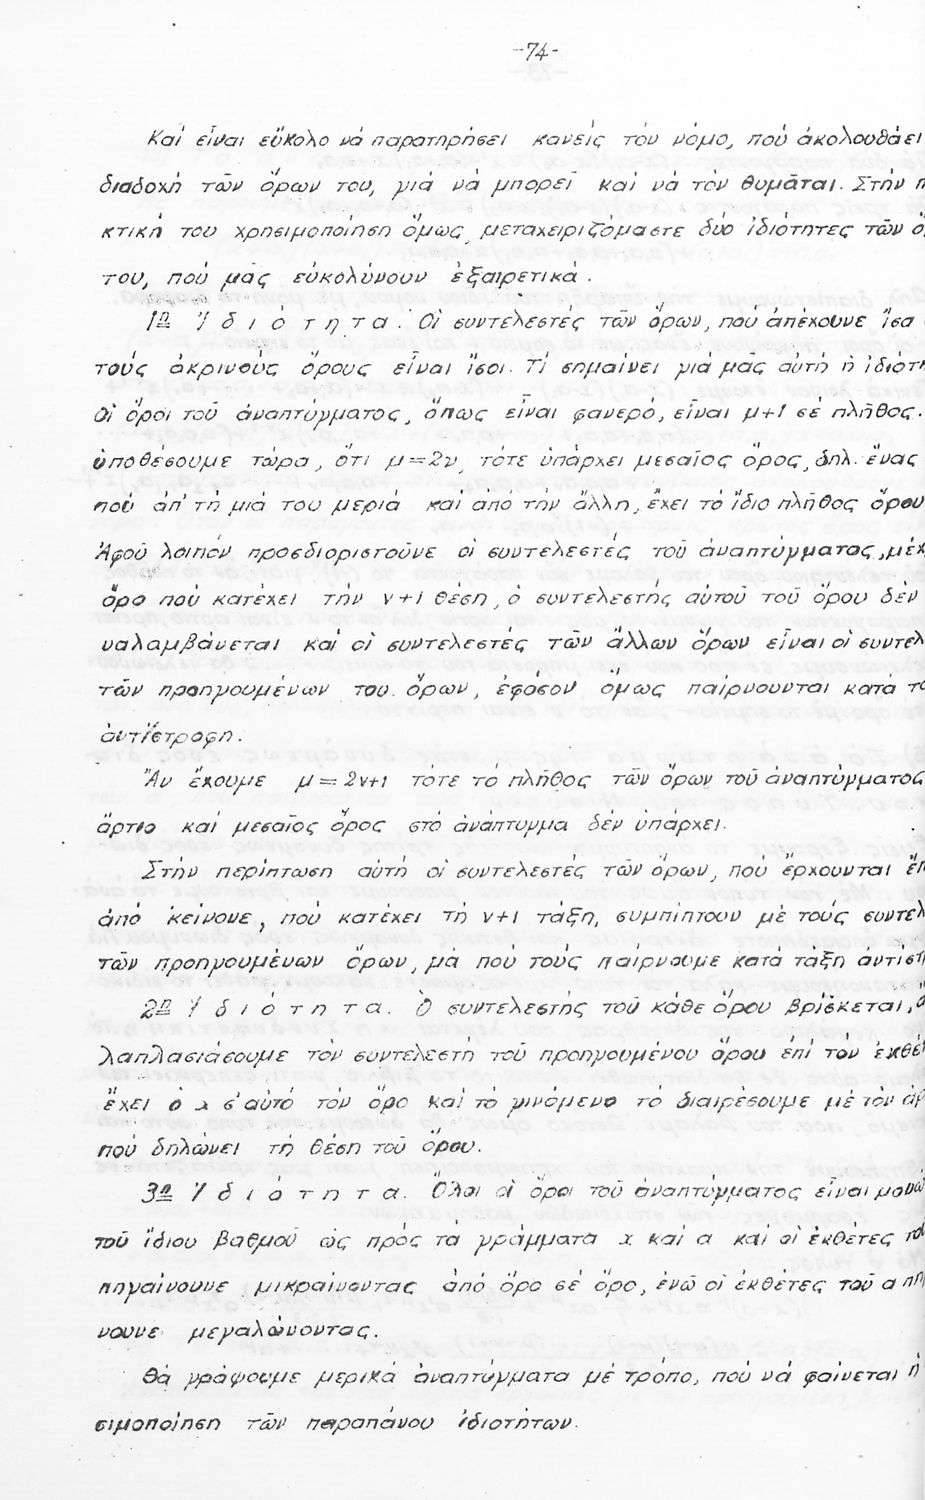 -74-
Καί εἶναι εὔκολο νά παρατηρήσει κανείς τόν νόμο, πού ἀκολουθάει
διαδοχή τῶν ὅρων του, γιά νά μπορεῖ καί νά τόν θυμᾶται. Στήν π
κτική του χρησιμοποίηση ὅμως, μεταχειριζόμαστε δύο ἰδιότητες τῶν ὅ
του, πού μᾶς εὐκολύνουν ἐξαιρετικά.
1η Ἰ δ ι ό τ η τ α. Οἱ συντελεστές τῶν ὅρων, πού ἀπέχουνε ἴσα
τούς ἀκρινούς ὅρους εἶναι ἴσοι. Τί σημαίνει γιά μᾶς αὐτή ἡ ἰδιότη
Οἱ ὅροι τοῦ ἀναπτύγματος, ὅπως εἶναι φανερό, εἶναι μ+1 σέ πλῆθος.
ὑποθέσουμε τώρα, ὅτι μ=2ν, τότε ὑπάρχει μεσαῖος ὅρος, δηλ. ἕνας
πού ἀπ' τή μιά του μεριά καί ἀπό τήν ἄλλη, ἔχει τό ἴδιο πλῆθος ὅρου
Ἀφοῦ λοιπόν προσδιοριστοῦνε οἱ συντελεστές τοῦ ἀναπτύγματος, μέχ
ὅρο πού κατέχει τήν ν+1 θέση, ὁ συντελεστής αὐτοῦ τοῦ ὅρου δέν
ναλαμβάνεται καί οἱ συντελεστές τῶν ἄλλων ὅρων εἶναι οἱ συντελ
τῶν προηγουμένων του ὅρων, ἐφόσον ὅμως παίρνουνται κατά τ
ἀντίστροφη.
Ἄν ἔχουμε μ=2ν+1 τότε τό πλῆθος τῶν ὅρων τοῦ ἀναπτύγματος
ἄρτιο καί μεσαῖος ὅρος στό ἀνάπτυγμα δέν ὑπάρχει.
Στήν περίπτωση αὐτή οἱ συντελεστές τῶν ὅρων, πού ἔρχουνται ἔπ
ἀπό κείνονε, πού κατέχει τή ν+1 τάξη, συμπίπτουν μέ τούς συντελ
τῶν προηγουμένων ὅρων, μά πού τούς παίρνουμε κατά τάξη ἀντιστ
2η Ἰ δ ι ό τ η τ α. Ὁ συντελεστής τοῦ κάθε ὅρου βρίσκεται,
λαπλασιάσουμε τόν συντελεστή τοῦ προηγουμένου ὅρου ἐπί τόν ἐκθέ
ἔχει ὁ χ σ' αὐτό τόν ὅρο καί τό γινόμενο τό διαιρέσουμε μέ τόν ἀρ
πού δηλώνει τή θέση τοῦ ὅρου.
3η Ἰ δ ι ό τ η τ α. Ὅλοι οἱ ὅροι τοῦ ἀναπτύγματος εἶναι μονώ
τοῦ ἴδιου βαθμοῦ ὡς πρός τά γράμματα χ καί α καί οἱ ἐκθέτες τοῦ
πηγαίνουνε μικραίνοντας ἀπό ὅρο σέ ὅρο, ἐνῶ οἱ ἐκθέτες τοῦ α πη
νουνε μεγαλώνοντας.
Θά γράψουμε μερικά ἀναπτύγματα μέ τρόπο, πού νά φαίνεται ἡ
σιμοποίηση τῶν παραπάνου ἰδιοτήτων.